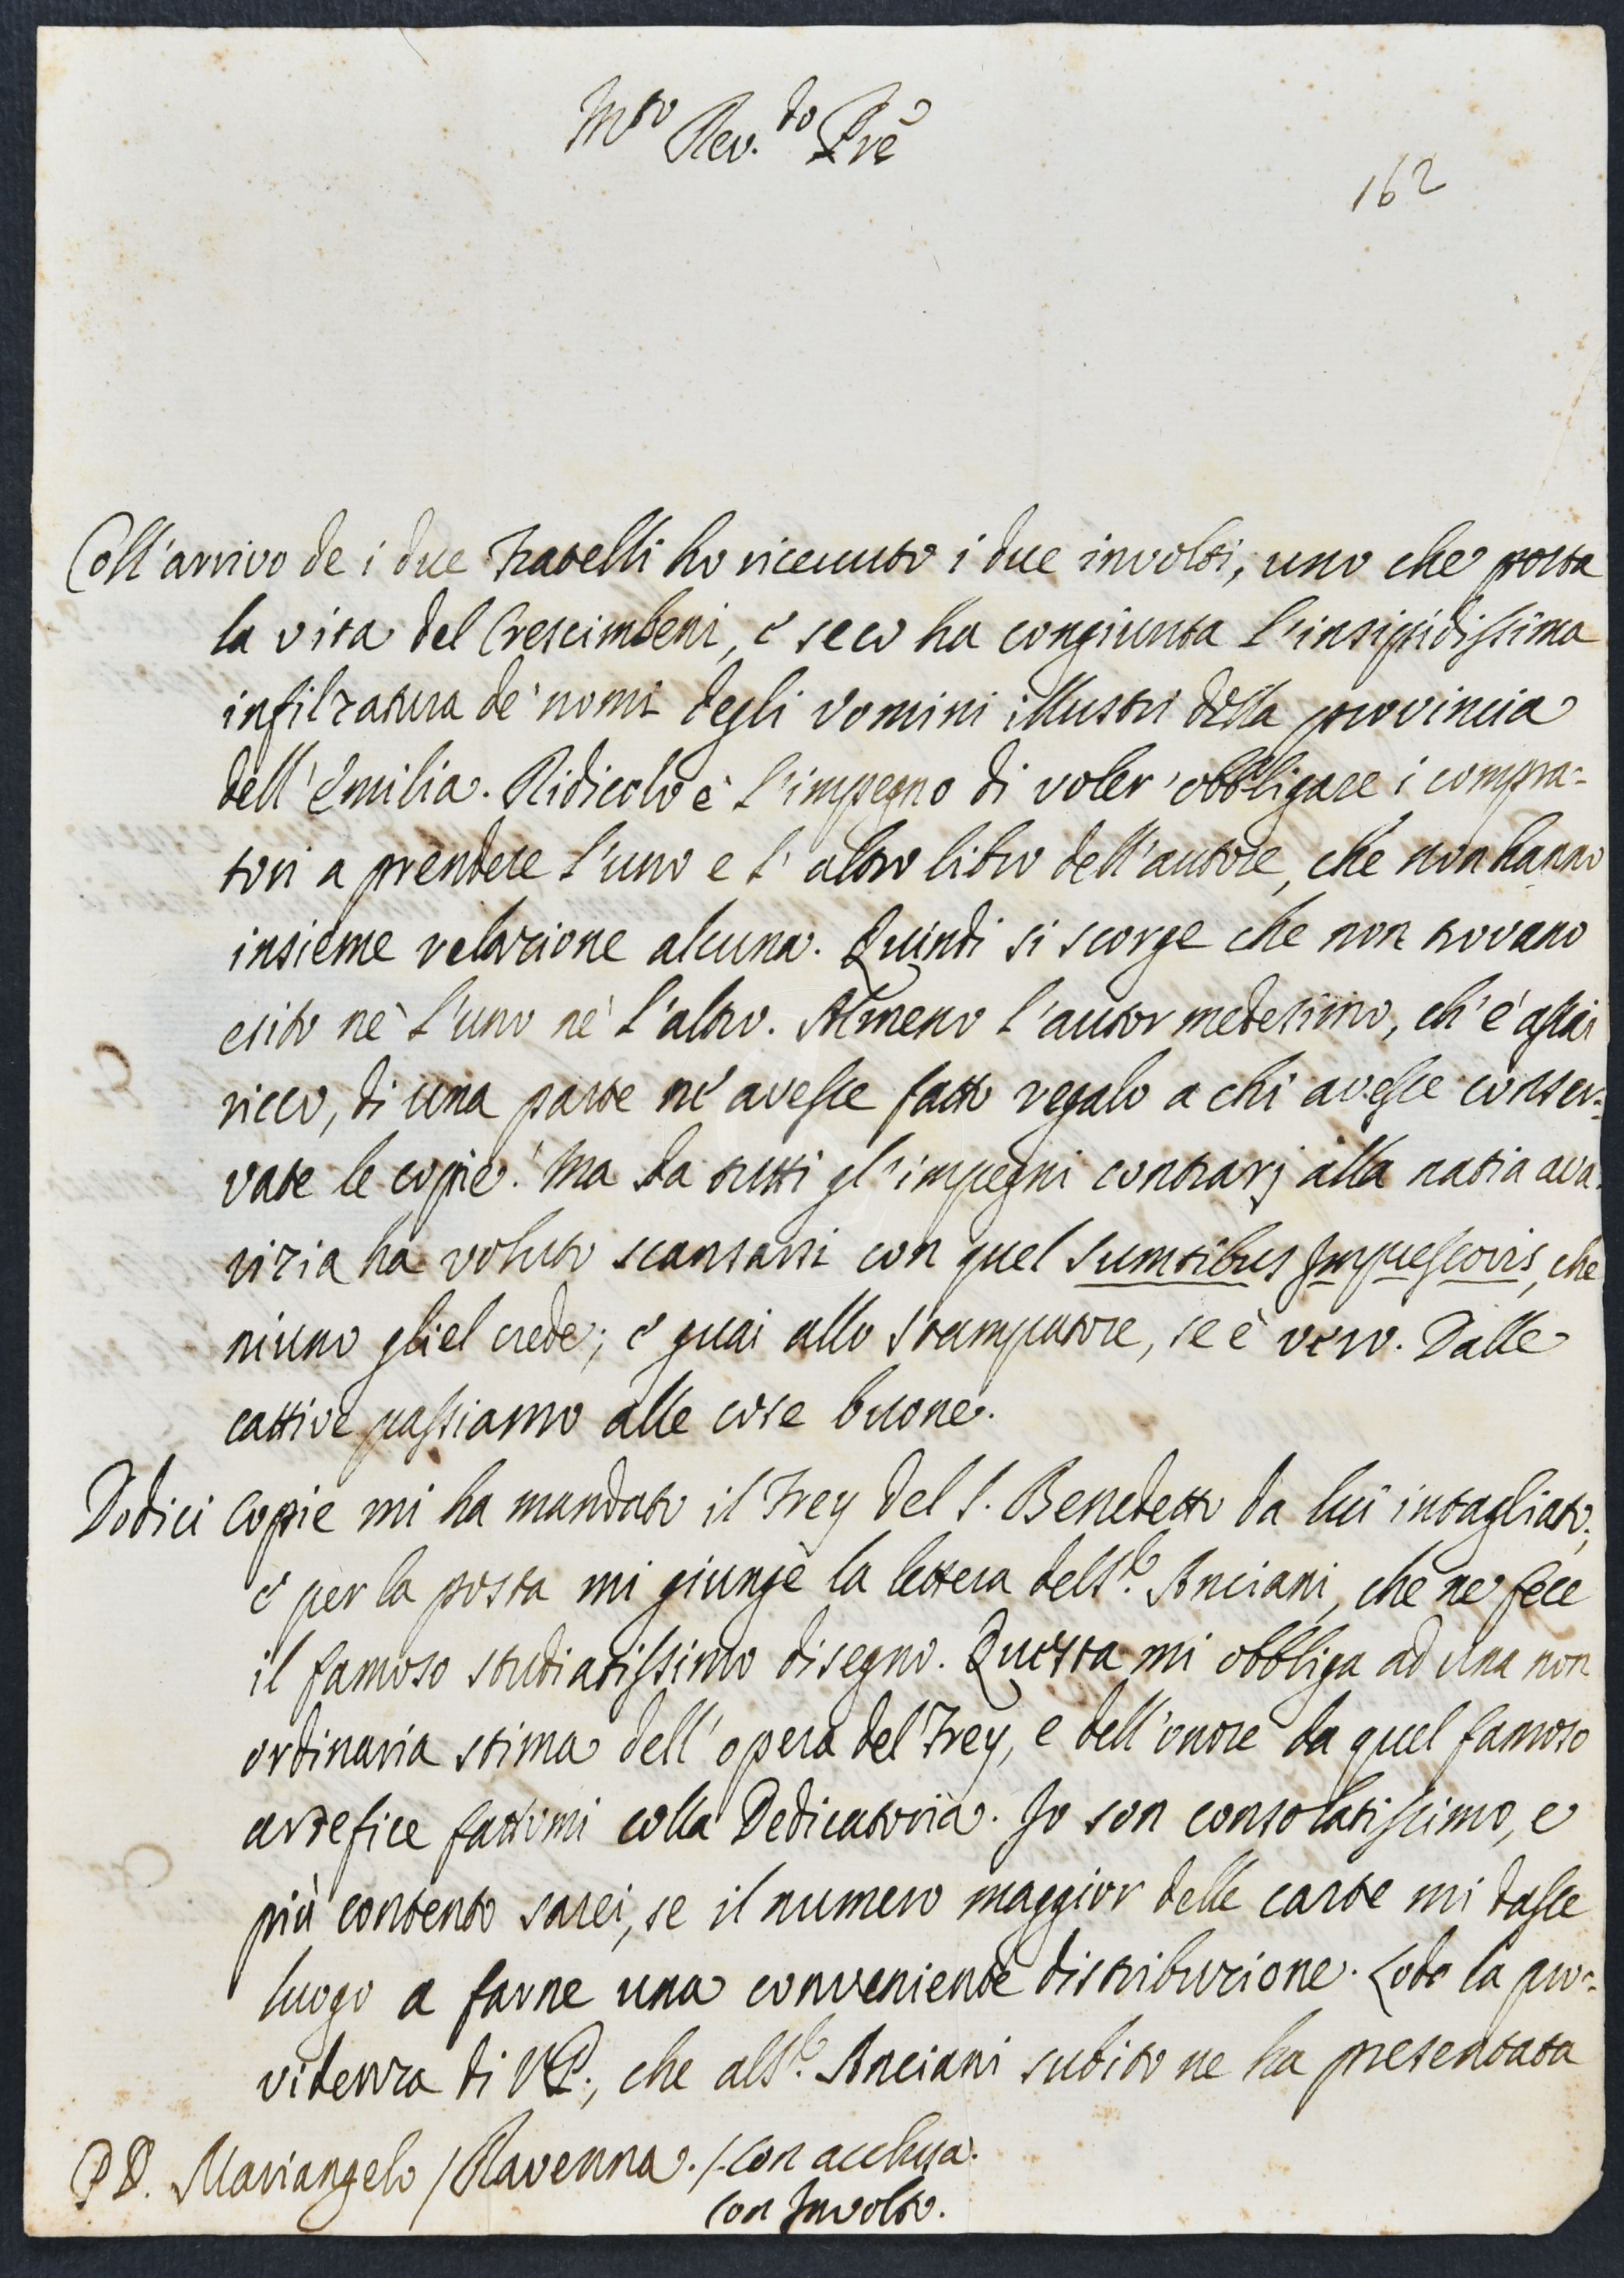 Mto Rev.do Pre
162
Coll'arrivo de i due Fratelli ho ricevuto i due involti, uno che porta
la vita del Crescimbeni, e seco ha congiunta l'insipidissima
infilzatura de' nomi degli uomini illustri della provincia
dell'Emilia. Ridicolo è l'impegno di voler'obbligare i compra=
tori a prendere l'uno e l'altro libro dell'autore, che non hanno
insieme relazione alcuna. Quindi si scorge che non trovano
esito nè l'uno nè l'altro. Almeno l'autor medesimo, ch'è assai
ricco, di una parte ne avesse fatto regalo a chi avesse conser=
vate le copie! Ma da tutti gl'impegni contrarj alla natia ava=
rizia ha voluto scansarsi con quel sumtibus Impressoris, che
niuno gliel crede; e guai allo Stampatore, se è vero. Dalle
cattive passiamo alle cose buone.
Dodici copie mi ha mandato il Frey del S. Benedetto da lui intagliato;
e per la posta mi giunge la lettera del Sr. Anciani, che ne fece
il famoso studiatissimo disegno. Questa mi obbliga ad una non
ordinaria stima dell'opera del Frey, e dell'onore da quel famoso
artefice fattomi colla Dedicatoria. Io son consolatissimo, e
più contento sarei, se il numero maggior delle carte mi dasse
luogo a farne una conveniente distribuzione. Lodo la pro=
videnza di VP., che al Sr. Anciani subito ne ha presentata
PD. Mariangelo / Ravenna. / con acclusa.
con Involto.